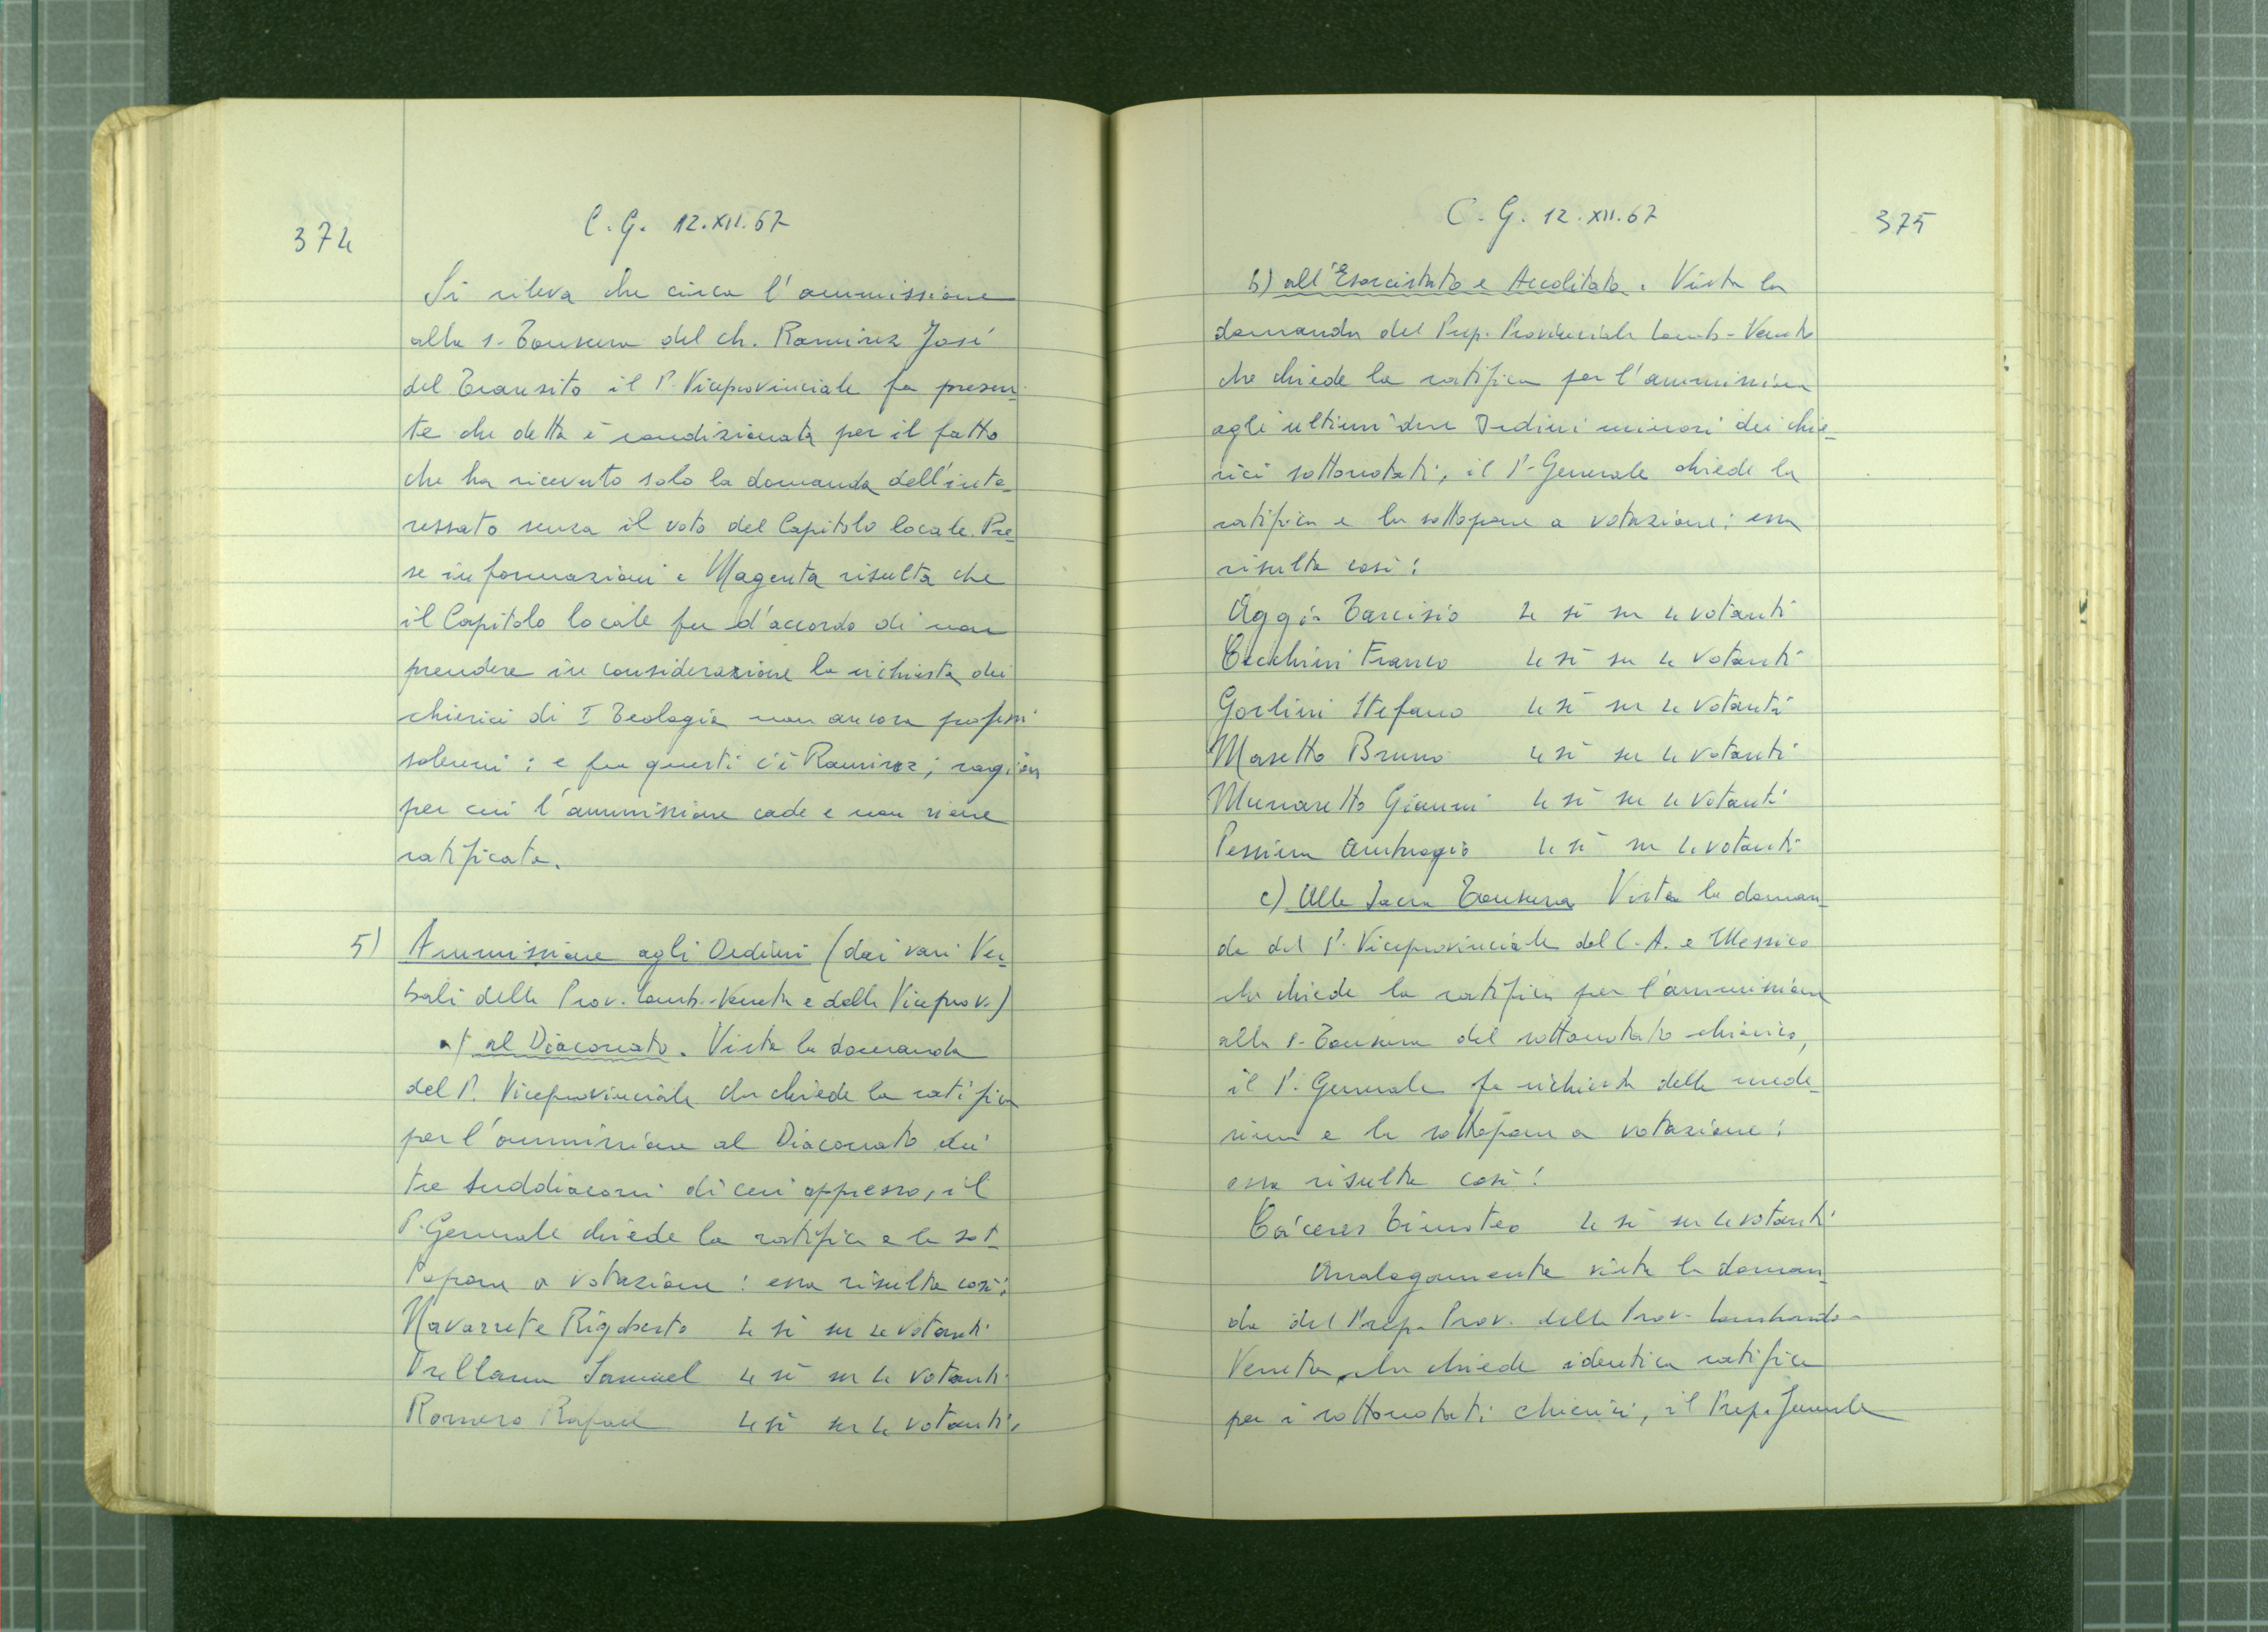 374
C. G. 12.XII.67
Si rileva che circa l'ammissione
alla s. Tonsura del ch. Ramirez José
del Transito il P. Viceprovinciale fa presen-
te che detta è condizionata per il fatto
che ha ricevuto solo la domanda dell'inte-
ressato senza il voto del Capitolo locale. Pre-
se informazioni a Magenta risulta che
il Capitolo locale fu d'accordo di non
prendere in considerazione la richiesta dei
chierici di I Teologia non ancora professi
solenni: e fra questi c'è Ramirez; ragion
per cui l'ammissione cade e non viene
ratificata.
5) Ammissione agli Ordini (dai vari Ver-
bali della Prov. Lomb.-Veneta e della Viceprov.)
a) al Diaconato. Vista la domanda
del P. Viceprovinciale che chiede la ratifica
per l'ammissione al Diaconato dei
tre suddiaconi di cui appresso, il
P. Generale chiede la ratifica e la sot-
topone a votazione: essa risulta così:
Navarrete Rigoberto 4 sì su 4 votanti
Orellana Samuel 4 sì su 4 votanti
Romero Rafael 4 sì su 4 votanti.
C. G. 12.XII.67
375
b) all'Esorcistato e Accolitato. Vista la
domanda del Prep. Provinciale Lomb-Veneto
che chiede la ratifica per l'ammissione
agli ultimi due Ordini minori dei chie-
rici sottonotati, il P. Generale chiede la
ratifica e la sottopone a votazione: essa
risulta così:
Aggio Tarcisio 4 sì su 4 votanti
Cecchini Franco 4 sì su 4 votanti
Gorlini Stefano 4 sì su 4 votanti
Masetto Bruno 4 sì su 4 votanti
Munaretto Gianni 4 sì su 4 votanti
Pessina Ambrogio 4 sì su 4 votanti
c) Alla Sacra Tonsura Vista la doman-
da del P. Viceprovinciale del C. A. e Messico
che chiede la ratifica per l'ammissione
alla s. Tonsura del sottonotato chierico,
il P. Generale fa richiesta della mede-
sima e la sottopone a votazione:
essa risulta così:
Cáceres Timoteo 4 sì su 4 votanti
Analogamente vista la doman-
da del Prep. Prov. della Prov. Lombardo-
Veneta, che chiede identica ratifica
per i sottonotati chierici, il Prep. Generale